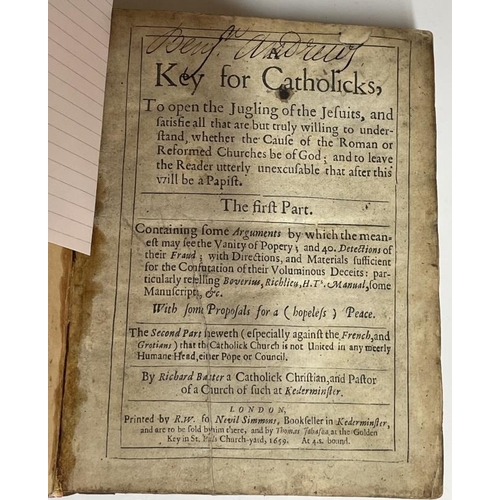 Benj. Andrews
A
Key for Catholicks,
To open the Jugling of the Jesuits, and
satisfie all that are but truly willing to under-
stand, whether the Cause of the Roman or
Reformed Churches be of God; and to leave
the Reader utterly unexcusable that after this
will be a Papist.
The first Part.
Containing some Arguments by which the mean-
est may see the Vanity of Popery; and 40. Detections of
their Fraud; with Directions, and Materials sufficient
for the Confutation of their Voluminous Deceits: par-
ticularly refelling Boverius, Richlieu, H.T's. Manual, some
Manuscripts, &c.
With some Proposals for a (hopeless) Peace.
The Second Part sheweth (especially against the French, and
Grotians) that the Catholick Church is not United in any meerly
Humane Head, either Pope or Council.
By Richard Baxter a Catholick Christian, and Pastor
of a Church of such at Kederminster.
LONDON,
Printed by R.W. for Nevil Simmons, Bookseller in Kederminster,
and are to be sold by him there, and by Thomas Johnson at the Golden
Key in St. Pauls Church-yard, 1659. At 4s. bound.